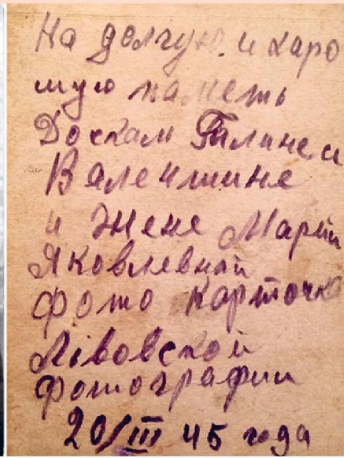 На долгую и харо
шую паметь
Доскам Галине и
Валентине
и Жене Марии
Яковлевной
фото карточка
Лівовской
фотографии
20/III 45 года